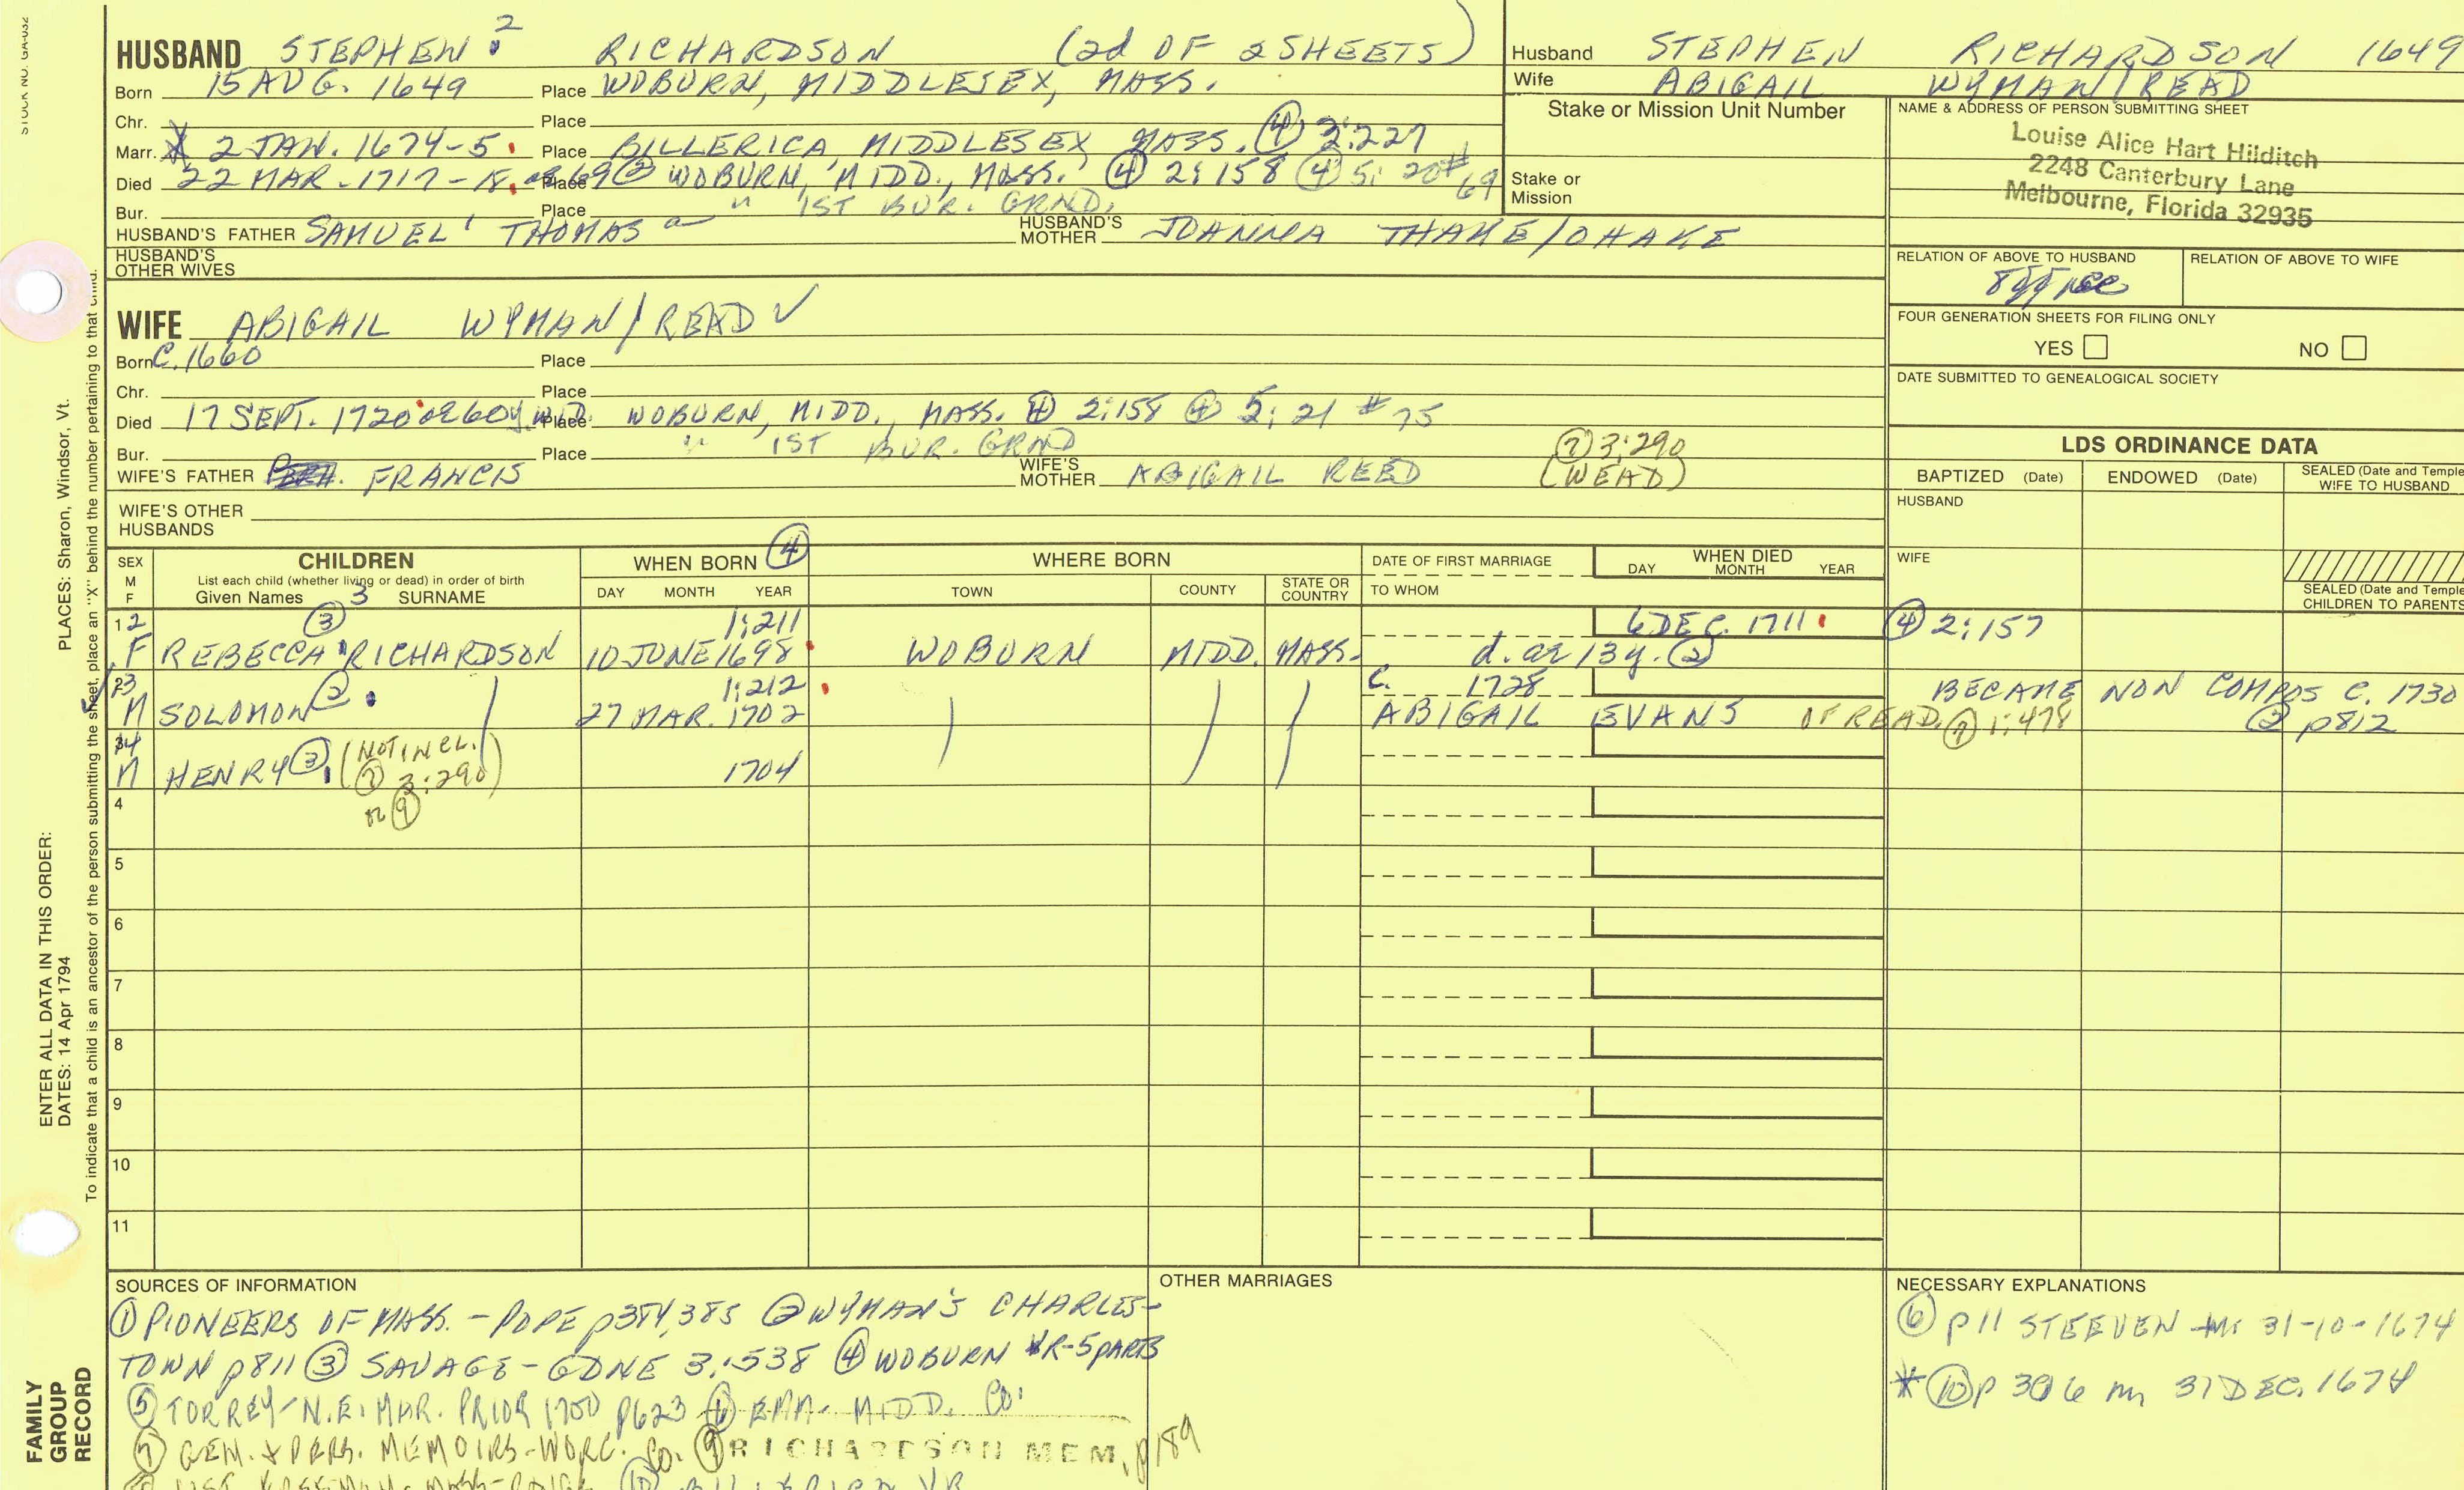 STOCK NO. GA-032
HUSBAND STEPHEN 2 RICHARDSON (2d OF 2 SHEETS)
Born 15 AUG. 1649 Place WOBURN, MIDDLESEX, MASS.
Chr. Place
Marr. 2 JAN. 1674-5 Place BILLERICA, MIDDLESEX MASS. ④ 2:227
Died 22 MAR. 1717-18. ae 69 ② Place WOBURN, MIDD., MASS. ④ 2:158 ④ 5: 20 # 69
Bur. Place " 1ST BUR. GRND.
HUSBAND'S FATHER SAMUEL 1 THOMAS a HUSBAND'S MOTHER JOANNA THAKE/OHAKE
HUSBAND'S OTHER WIVES
WIFE ABIGAIL WYMAN/READ ✓
Born C. 1660 Place
Chr. Place
Died 17 SEPT. 1720 ae 60y. wid. Place WOBURN, MIDD., MASS. ④ 2:158 ④ 5: 21 # 75
Bur. Place " 1ST BUR. GRND
WIFE'S FATHER FRANCIS WIFE'S MOTHER ABIGAIL REED ⑦ 3:290 (WEAD)
WIFE'S OTHER HUSBANDS
Husband STEPHEN RICHARDSON 1649
Wife ABIGAIL WYMAN/READ
Stake or Mission Unit Number
Stake or Mission
NAME & ADDRESS OF PERSON SUBMITTING SHEET
Louise Alice Hart Hilditch
2248 Canterbury Lane
Melbourne, Florida 32935
RELATION OF ABOVE TO HUSBAND RELATION OF ABOVE TO WIFE
FOUR GENERATION SHEETS FOR FILING ONLY
YES NO
DATE SUBMITTED TO GENEALOGICAL SOCIETY
LDS ORDINANCE DATA
BAPTIZED (Date) ENDOWED (Date) SEALED (Date and Temple WIFE TO HUSBAND
HUSBAND
WIFE
SEALED (Date and Temple CHILDREN TO PARENTS
SEX M F CHILDREN WHEN BORN ④ WHERE BORN DATE OF FIRST MARRIAGE WHEN DIED
List each child (whether living or dead) in order of birth
Given Names 3 SURNAME DAY MONTH YEAR TOWN COUNTY STATE OR COUNTRY TO WHOM DAY MONTH YEAR
1 2 ③ 1:211 6 DEC. 1711 ④ 2:157
F REBECCA RICHARDSON 10 JUNE 1698 WOBURN MIDD. MASS. d. ae 13 y. ②
2 3 ② 1:212 C. 1728 BECAME NON COMPOS C. 1730
M SOLOMON 27 MAR. 1702 ABIGAIL EVANS OF READ. ⑦ 1:478 ② p812
3 4 (NOT IN CL.
M HENRY ③ ⑦ 3:290) 1704
4 or ⑨
5
6
7
8
9
10
11
SOURCES OF INFORMATION
① PIONEERS OF MASS. - POPE p384,385 ② WYMAN'S CHARLES-
TOWN p811 ③ SAVAGE - GDNE 3:538 ④ WOBURN VR-5 PARTS
⑤ TORREY - N.E. MAR. PRIOR 1700 p623 ⑥ MIDD. Co.
⑦ GEN. & PERS. MEMOIRS - WORC. Co. ⑨ RICHARDSON MEM. p189
OTHER MARRIAGES
NECESSARY EXPLANATIONS
⑥ p11 STEEVEN m 31-10-1674
* ⑩ p 306 m 31 DEC. 1674
PLACES: Sharon, Windsor, Vt.
To indicate that a child is an ancestor of the person submitting the sheet, place an "X" behind the number pertaining to that child.
ENTER ALL DATA IN THIS ORDER:
DATES: 14 Apr 1794
FAMILY
GROUP
RECORD